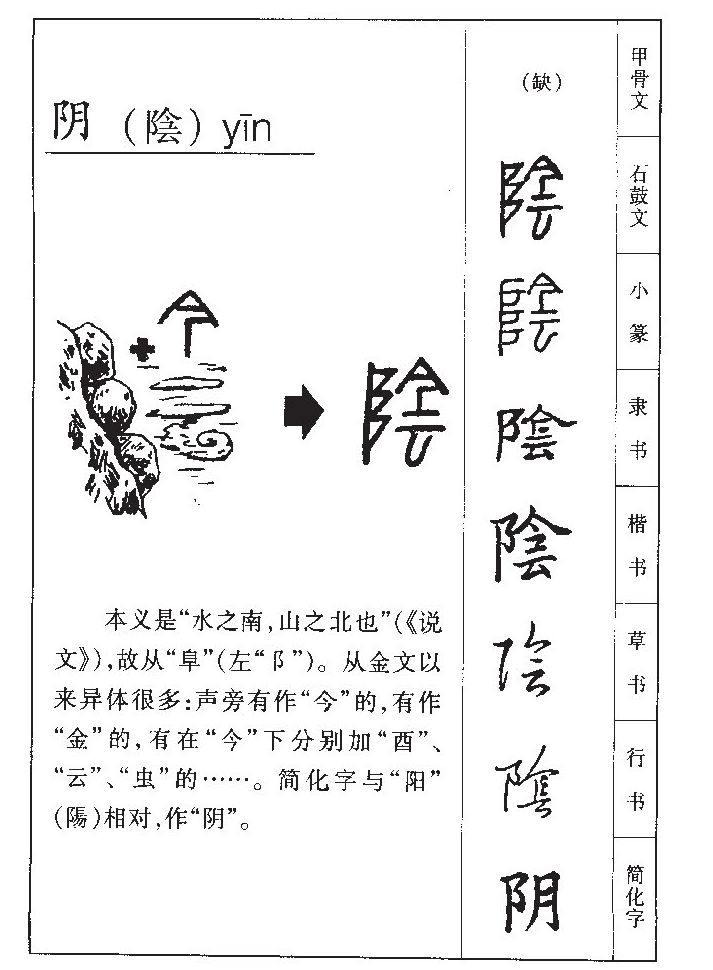 阴(陰)yīn
本义是“水之南,山之北也”(《说
文》),故从“阜”(左“阝”)。从金文以
来异体很多:声旁有作“今”的,有作
“金”的,有在“今”下分别加“酉”、
“云”、“虫”的……。简化字与“阳”
(陽)相对,作“阴”。
(缺)
甲骨文
陰
石鼓文
陰
小篆
陰
隶书
陰
楷书
陰
草书
陰
行书
阴
简化字